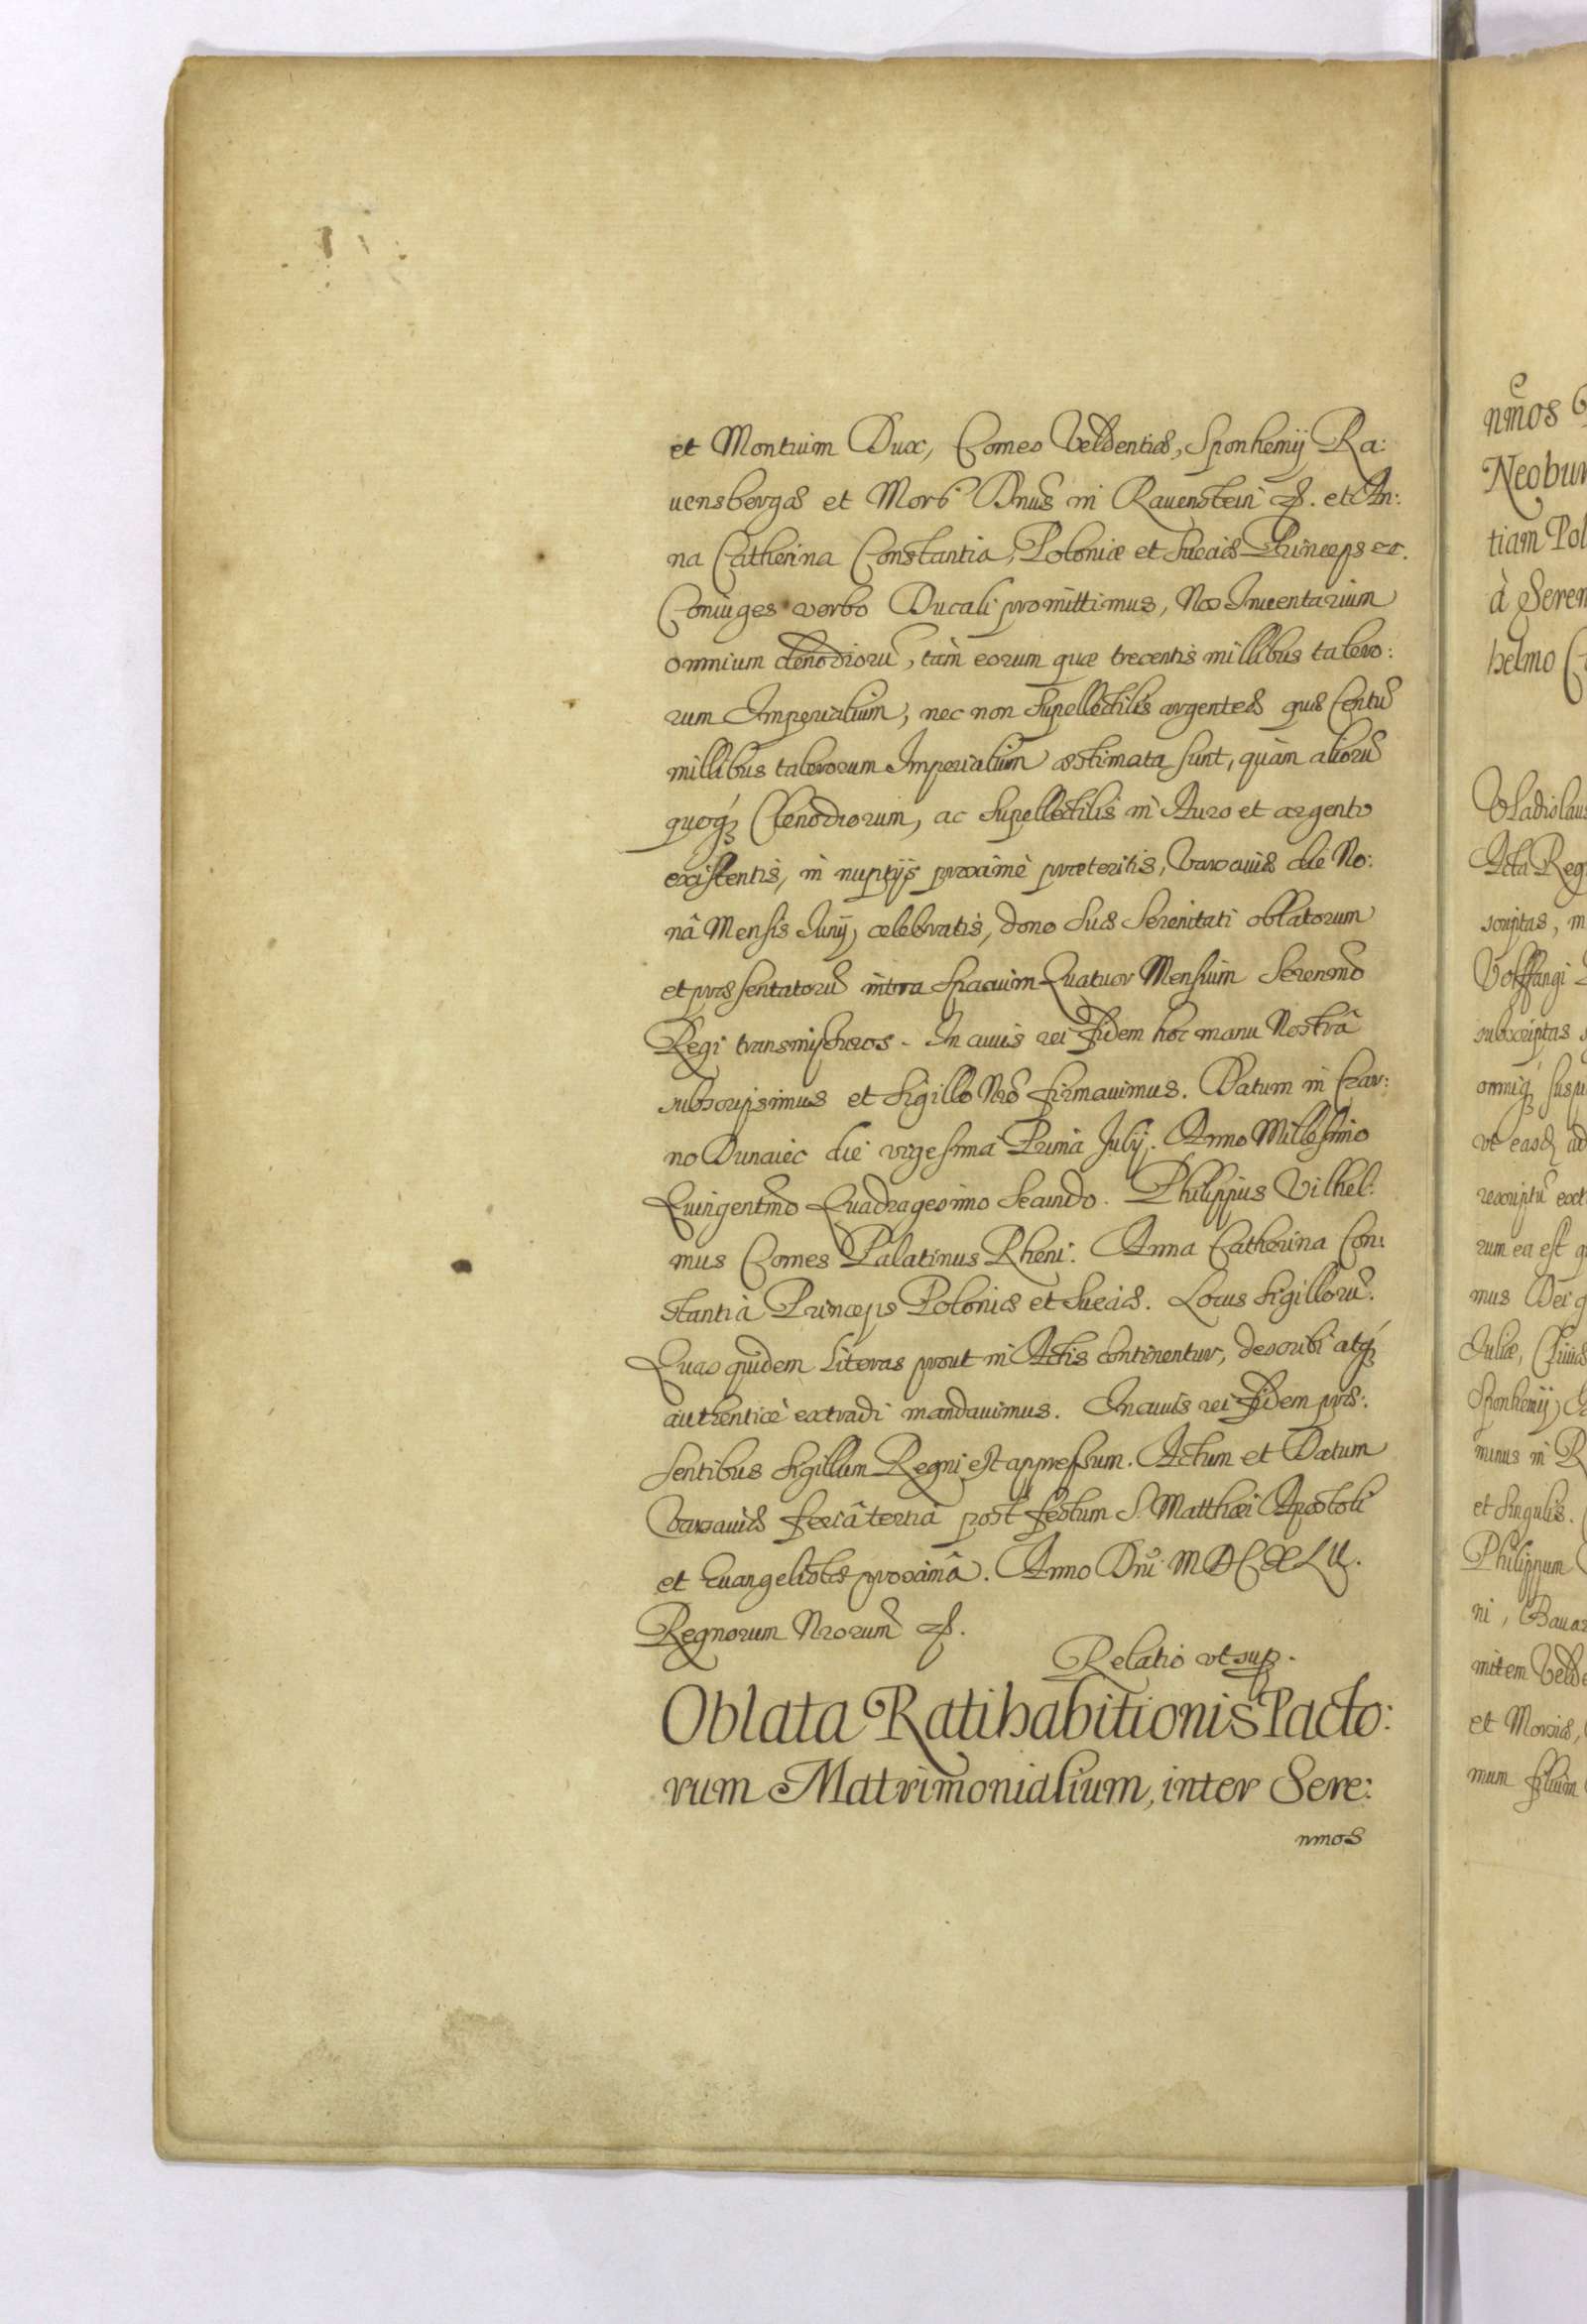 et Montium Dux, Comes Veldentiæ, Sponhemij Ra:
uensbergæ et Mors Dnus in Rauenstein etc. et An:
na Catherina Constantia, Poloniæ et Sueciæ Princeps etc.
Coniuges verbo Ducali promittimus, Nos Inuentarium
omnium clenodiorũ, tàm eorum quæ trecentis millibus talero:
rum Imperialium, nec non Supellectilis argenteæ quæ Centũ
millibus talerorum Imperialium æstimata sunt, quàm aliorũ
quoq₃ Clenodiorum, ac Supellectilis in Auro et argento
existentis, in nuptijs proximè præteritis, Varsauiæ die No:
nâ Mensis Junij, celebratis, dono Suæ Serenitati oblatorum
et præsentatorũ intra Spacium Quatuor Mensium Serenmo
Regi transmissuros. In cuius rei fidem hoc manu Nostrâ
subscripsimus et Sigillo Nro firmauimus. Datum in Czar:
no Dunaiec die vigesima Prima Julij. Anno Millesimo
Quingentmo Quadragesimo Secundo. Philippus Vilhel:
mus Comes Palatinus Rheni. Anna Catherina Con:
stantia Princeps Poloniæ et Sueciæ. Locus Sigillorũ.
Quas quidem Literas prout in Actis continentur, describi atq₃
authenticè extradi mandauimus. In cuius rei fidem præ:
sentibus Sigillum Regni est appressum. Actum et Datum
Varsauiæ feriâ tertiâ post festum S. Matthæi Apostoli
et Euangelistæ proximâ. Anno Dni MDCXLII.
Regnorum Nrorum etc.
Relatio vt sup.
Oblata Ratihabitionis Pacto:
rum Matrimonialium, inter Sere:
nmos
nmos
Neobur
tiam Pol
à Seren
helmo
Vladislaus
Acta Reg
scriptas, m
Volffangi
subscriptas
omniq₃ susp
vt easdẽ ad
rescriptũ ext
rum ea est q
mus Dei g
Juliæ, Cliuiæ
Sponhemij,
minus in R
et Singulis.
Philippum
ni, Bauar
mitem Velde
et Morsiæ,
mum filium